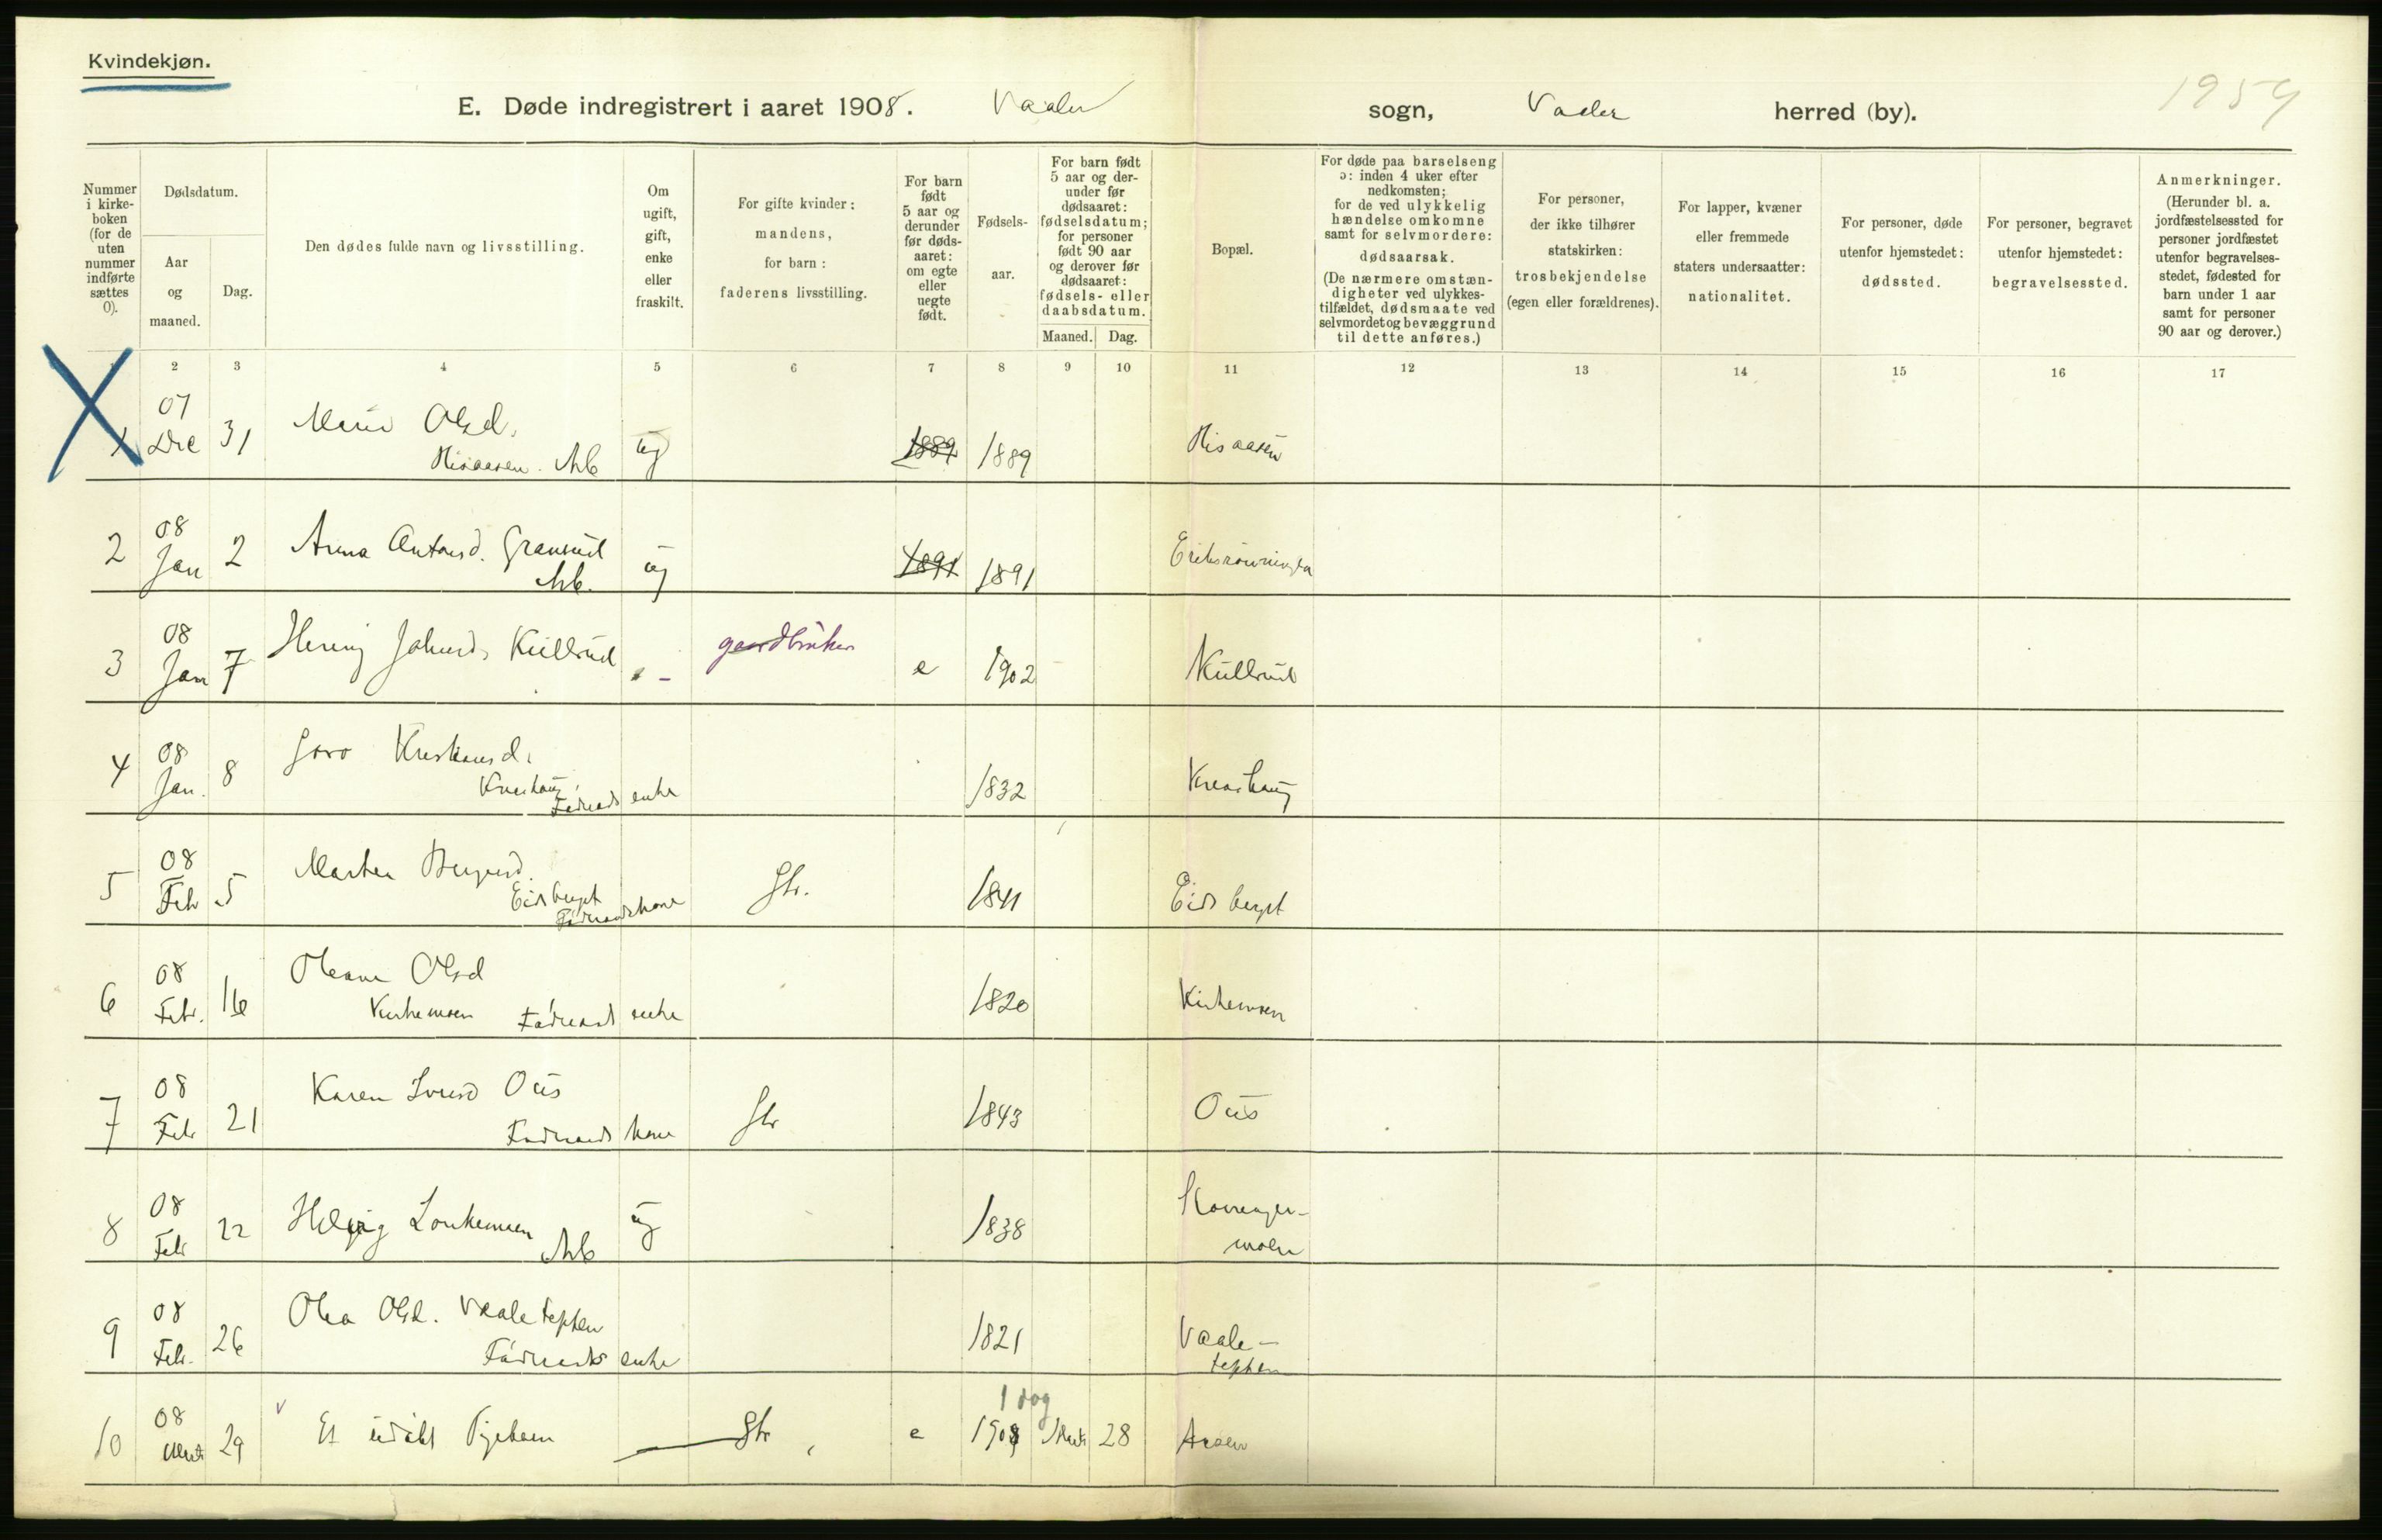 Kvindekjøn.
E. Døde indregistrert i aaret 1908. Vaaler sogn, Vaaler herred (by).
1954
Nummer i kirke-boken (for de uten nummer indførte sættes 0).
Dødsdatum.
Aar og maaned.
Dag.
Den dødes fulde navn og livsstilling.
Om ugift, gift, enke eller fraskilt.
For gifte kvinder: mandens, for barn: faderens livsstilling.
For barn født 5 aar og derunder før døds-aaret: om egte eller uegte født.
Fødsels-aar.
For barn født 5 aar og der-under før dødsaaret: fødselsdatum; for personer født 90 aar og derover før dødsaaret: fødsels- eller daabsdatum.
Maaned. Dag.
Bopæl.
For døde paa barselseng ɔ: inden 4 uker efter nedkomsten; for de ved ulykkelig hændelse omkomne samt for selvmordere: dødsaarsak. (De nærmere omstæn-digheter ved ulykkes-tilfældet, dødsmaate ved selvmordet og bevæggrund til dette anføres.)
For personer, der ikke tilhører statskirken: trosbekjendelse (egen eller forældrenes).
For lapper, kvæner eller fremmede staters undersaatter: nationalitet.
For personer, døde utenfor hjemstedet: dødssted.
For personer, begravet utenfor hjemstedet: begravelsessted.
Anmerkninger. (Herunder bl. a. jordfæstelsessted for personer jordfæstet utenfor begravelses-stedet, fødested for barn under 1 aar samt for personer 90 aar og derover.)
2 3 4 5 6 7 8 9 10 11 12 13 14 15 16 17
1 07 Dec 31 Marie Olsd. Hisaasen. Arb ug 1889 1889 Hisaasen
2 08 Jan 2 Anna Antonsd. Gransud Arb. ug 1891 1891
3 08 Jan 7 Kullrud - gaardbruker e 1902 Kullrud
4 08 Jan. 8 Goro Kristiansd. Føderaads enke 1832
5 08 Feb 5 Marthea Eidsberget Føderaadskone Gbr. 1841 Eidsberget
6 08 Feb. 16 Oleane Olsd Kirkemoen Føderaads enke 1820 Kirkemoen
7 08 Feb 21 Karen Ous Føderaads kone Gbr 1843 Ous
8 08 Feb 22 Arb ug 1838
9 08 Feb. 26 Olea Olsd. Vaaletepten Føderaads enke 1821 Vaale-tepten
10 08 Marts 29 Et udøbt Pigebarn Gbr e 1 dag 1908 Marts 28